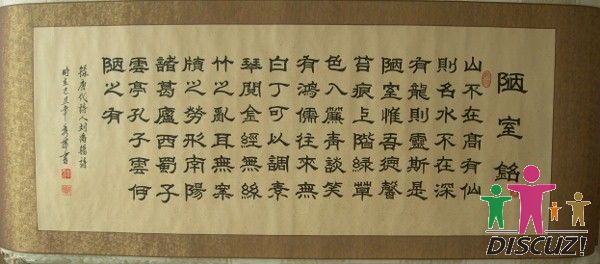 陋室銘
山不在高有仙
則名水不在深
有龍則靈斯是
陋室惟吾德馨
苔痕上階綠草
色入簾青談笑
有鴻儒往來無
白丁可以調素
琴閱金經無絲
竹之亂耳無案
牘之勞形南陽
諸葛廬西蜀子
雲亭孔子雲何
陋之有
唐代詩人刘禹錫詩
時在己丑年書
DISCUZ!